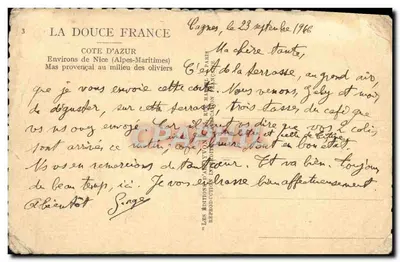 LA DOUCE FRANCE
COTE D'AZUR
Environs de Nice (Alpes-Maritimes)
Mas provençal au milieu des oliviers
Cagnes, le 23 septembre 1960
Ma chère tante,
C'est de la terrasse, au grand air
que je vous envoie cette carte. Nous venons, Zely et moi,
de déguster, sur cette terrasse, trois tasses du café que
vous nous avez envoyé. Car il faut vous dire que vos 2 colis
sont arrivés ce matin, tout en bon état.
Nous vous en remercions de tout cœur. Et va bien. Toujours
de beau temps, ici. Je vous embrasse bien affectueusement
A bientôt